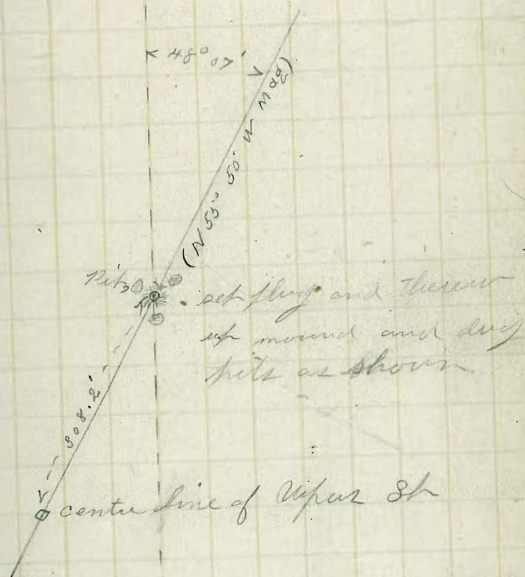 48° 07'
(N 55° 50' W Mag)
Pits
set plug and Threw
up mound and dug
pits as shown
308.2'
centre line of St